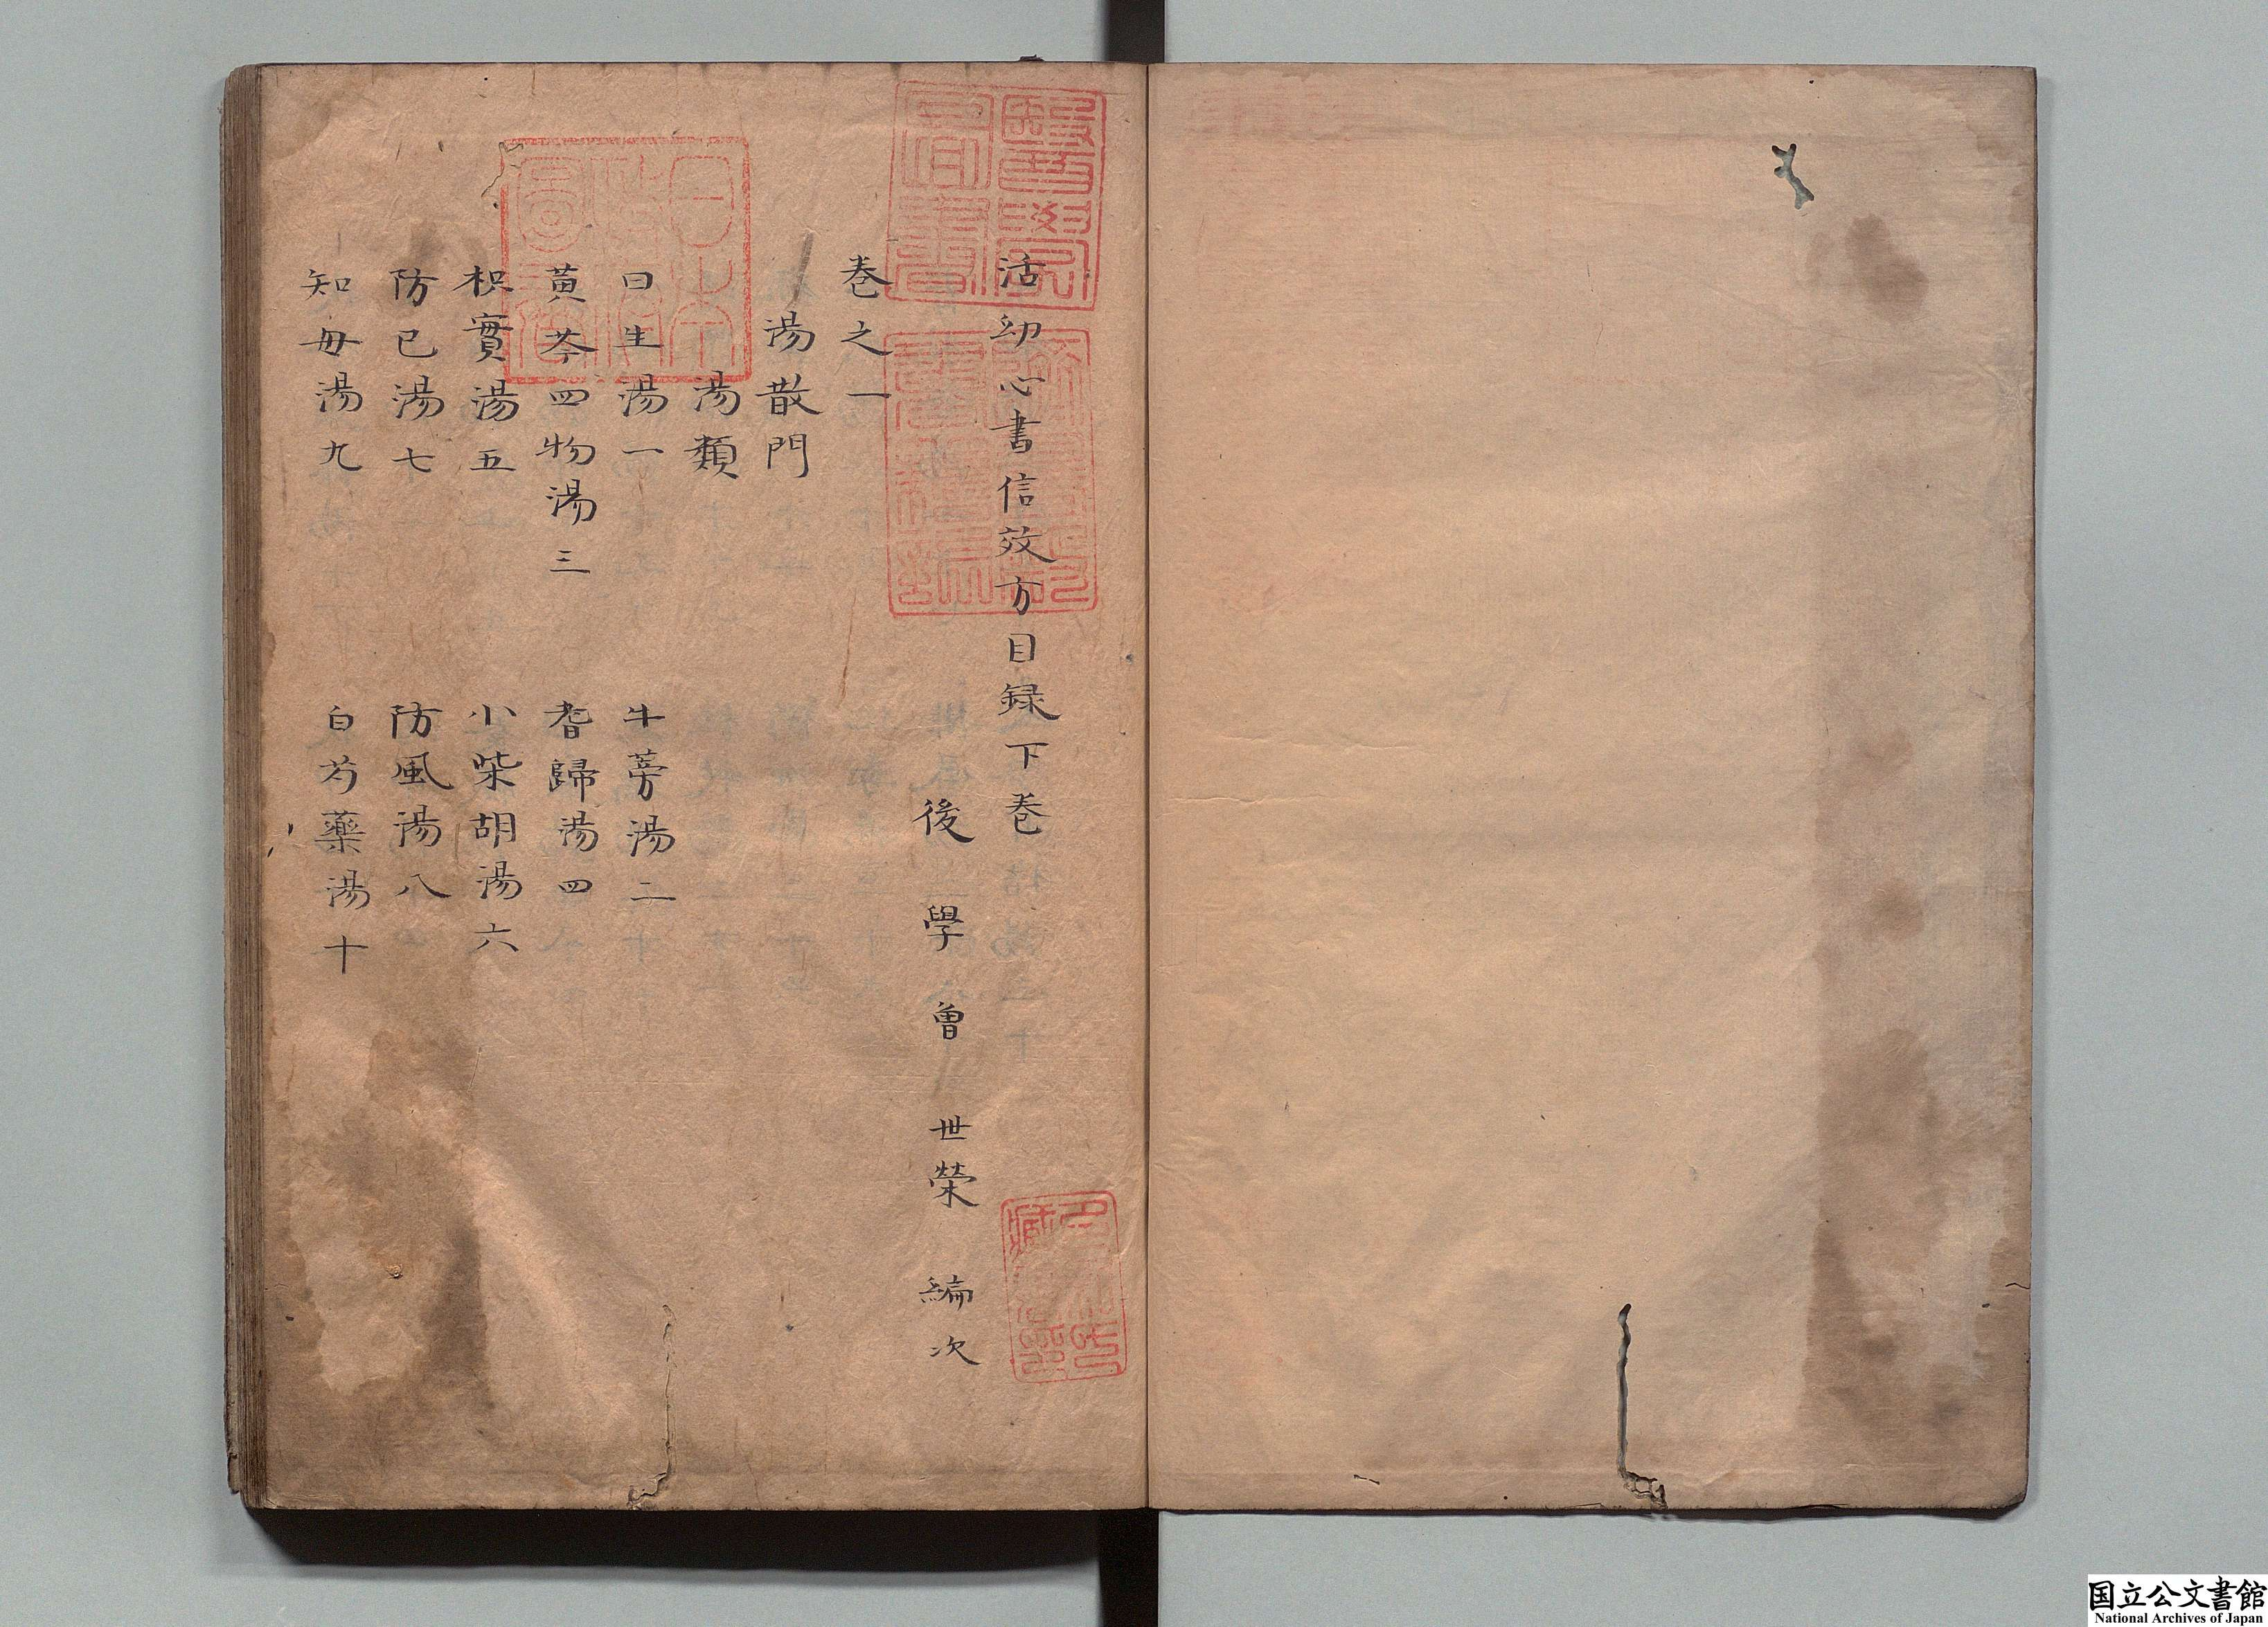 活幼心書信效方目録下卷
後學曾世榮編次
卷之一
湯散門
湯類
日生湯一
牛蒡湯二
黄芩四物湯三
耆歸湯四
枳實湯五
小柴胡湯六
防已湯七
防風湯八
知母湯九
白芍藥湯十
醫學圖書
躋壽殿書籍記
日本政府圖書
国立公文書館
National Archives of Japan